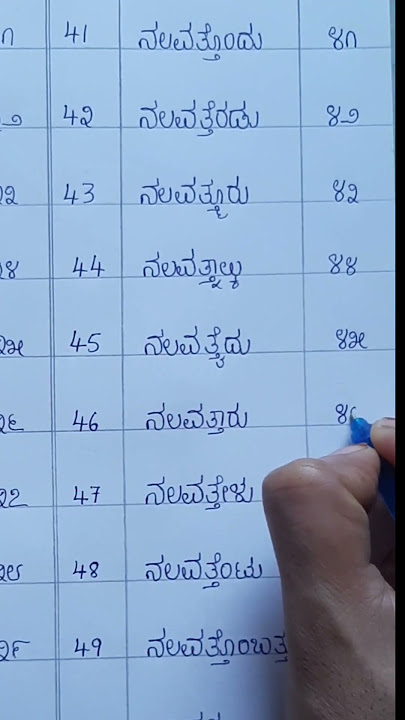 ೧ 41 ನಲವತ್ತೊಂದು ೪೧
೨ 42 ನಲವತ್ತೆರಡು ೪೨
೩ 43 ನಲವತ್ಮೂರು ೪೩
೪ 44 ನಲವತ್ನಾಲ್ಕು ೪೪
೩೫ 45 ನಲವತ್ತೈದು ೪೫
೩೬ 46 ನಲವತ್ತಾರು ೪
೩೭ 47 ನಲವತ್ತೇಳು
೩೮ 48 ನಲವತ್ತೆಂಟು
೩೯ 49 ನಲವತ್ತೊಂಬತ್ತ